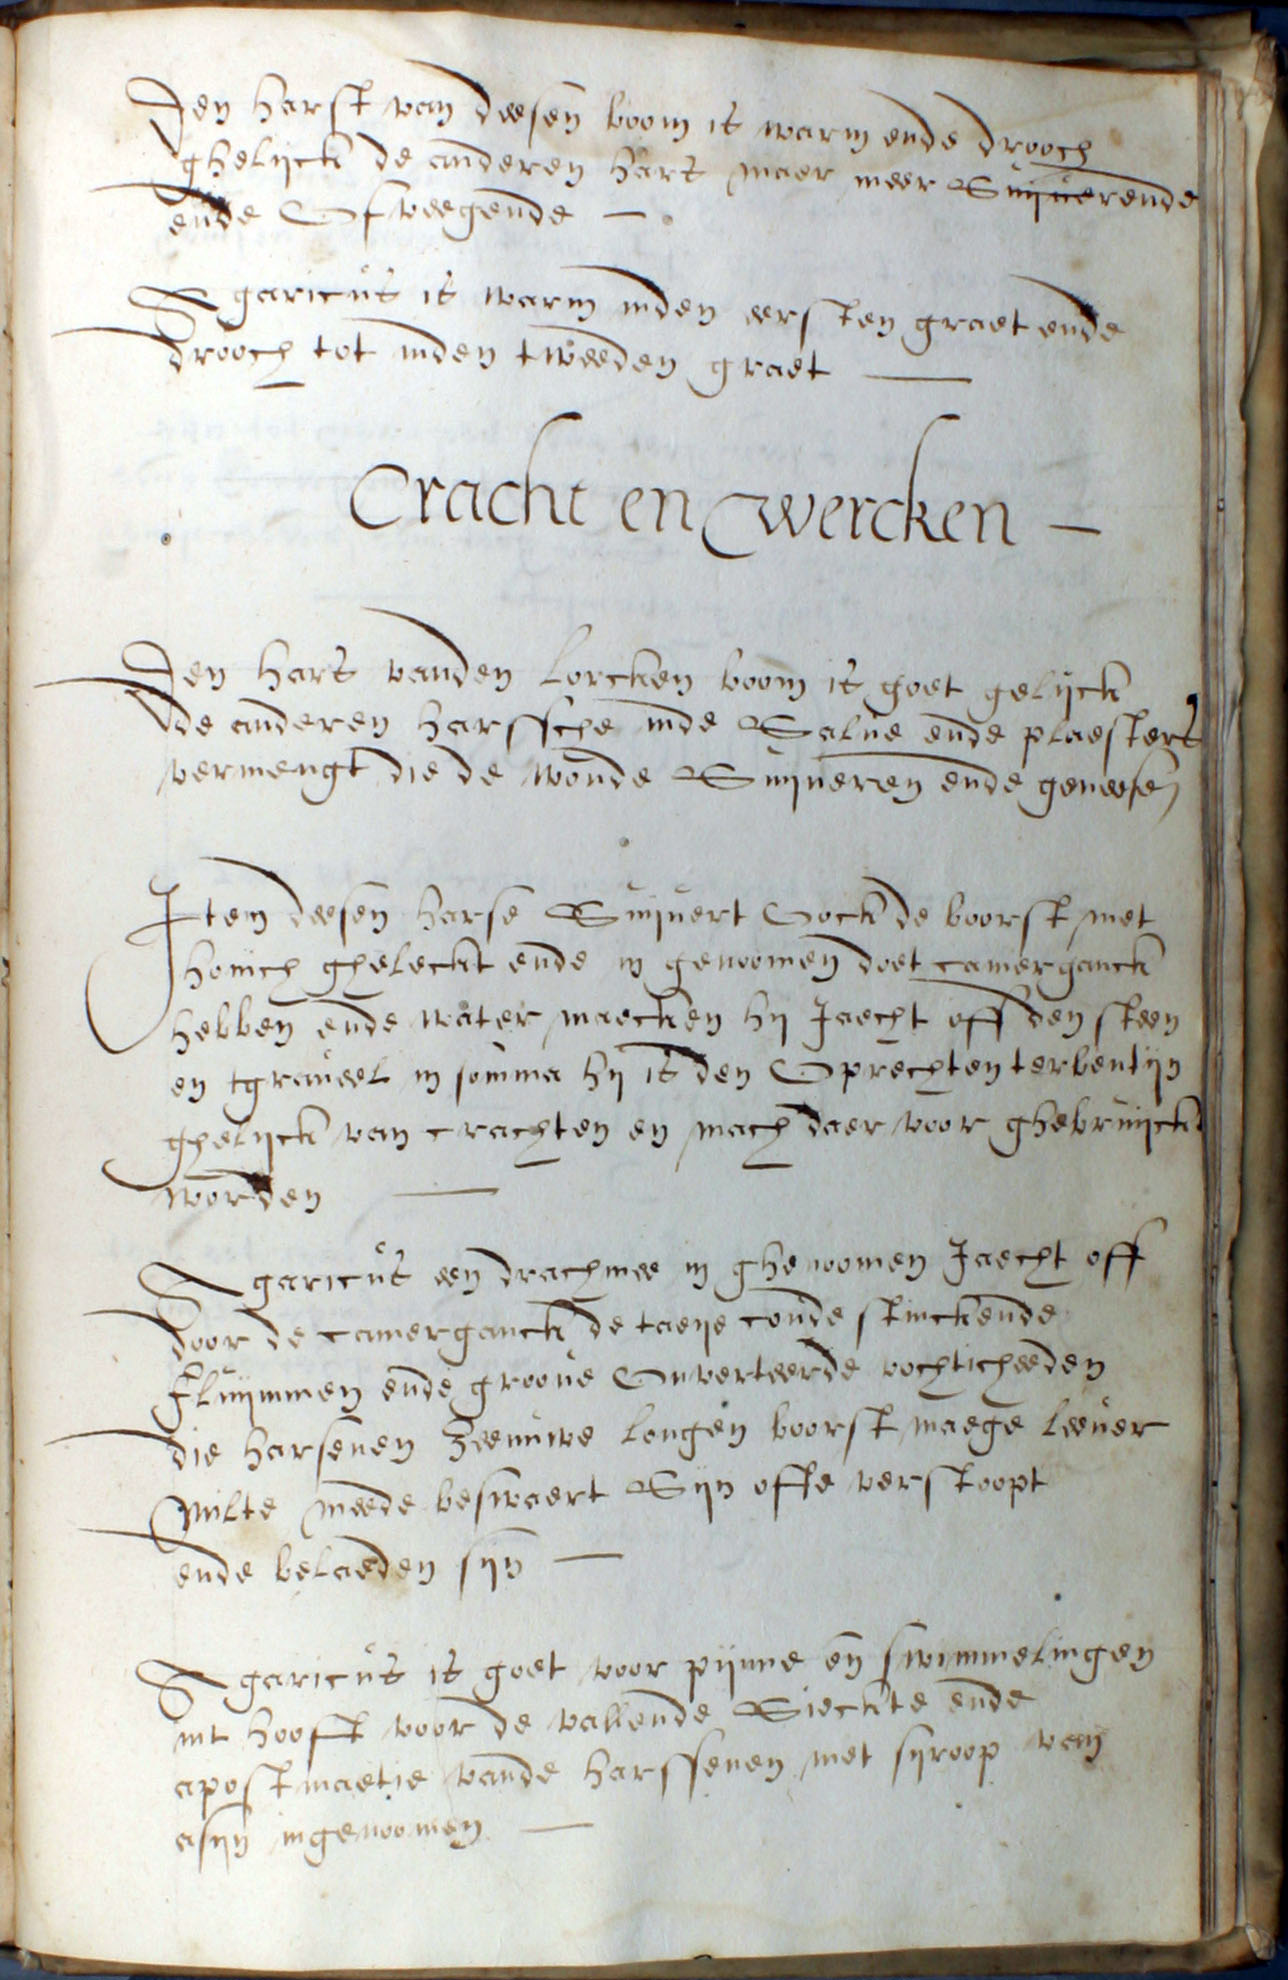 Den harst van deesen boom is warm ende drooch
ghelijck de anderen hars maer meer Suijuerende
ende Ofveegende —
Agaricus is warm inden eersten graet ende
drooch tot inden tweeden graet —
Cracht en Wercken —
Den hars vanden lorcken boom is goet gelijck
de anderen harssche inde Salue ende plaesters
vermengt die de wonde Suijueren ende geneesen
Item deesen harse Suijuert Oock de boorst met
honich gheleckt ende in genoomen doet camerganck
hebben ende water maecken hij Jaecht off den steen
en tgraueel in somma hij is den Oprechten terbentijn
ghelijck van crachten en mach daer voor ghebruijckt
worden —
Agaricus een drachmee in ghenoomen Jaecht off
door de camerganck de taeije coude stinckende
fluijmmen ende grooue Onverteerde vochticheeden
die harsenen Zeenuwe longen boorst maege leeuer
milte meede beswaert Sijn offte verstoopt
ende belaeden sijn —
Agaricus is goet voor pijnne en swimmelingen
int hooft voor de vallende Sieckte ende
apostmaetie vande harssenen met sijroop van
asijn ingenoomen —